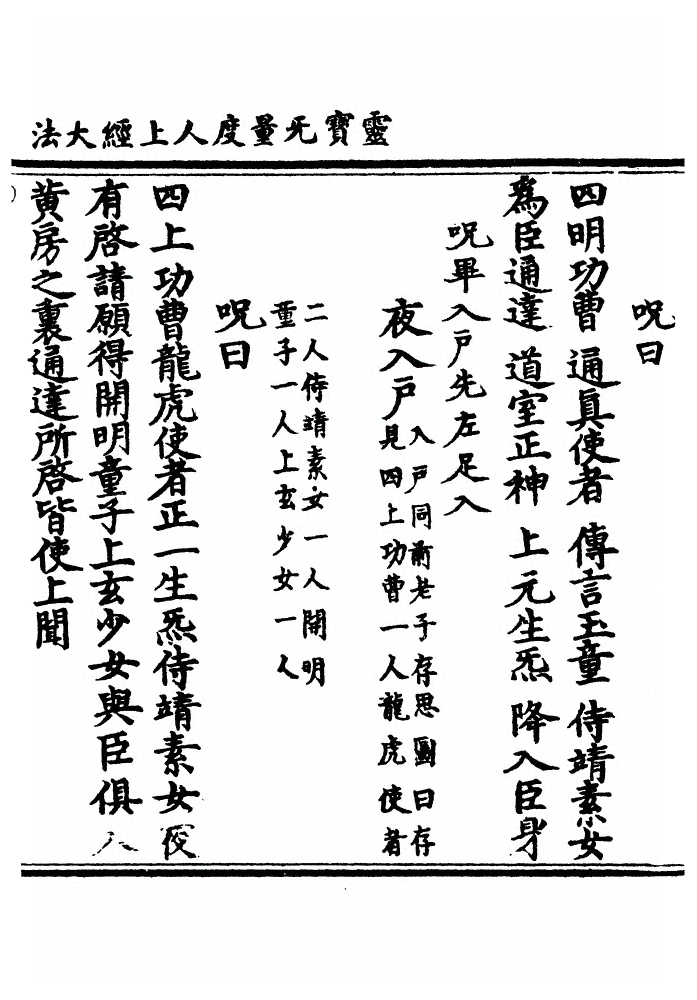 靈寶无量度人上經大法
呪曰
四明功曹 通真使者 傳言玉童 侍靖素女
為臣通達 道室正神 上元生炁 降入臣身
呪畢入戶先左足入
夜入戶 入戶同前老子存思圖曰存
見四上功曹一人龍虎使者
二人侍靖素女一人開明
童子一人上玄少女一人
呪曰
四上功曹龍虎使者正一生炁侍靖素女夜
有啓請願得開明童子上玄少女與臣俱入
黄房之裏通達所啓皆使上聞